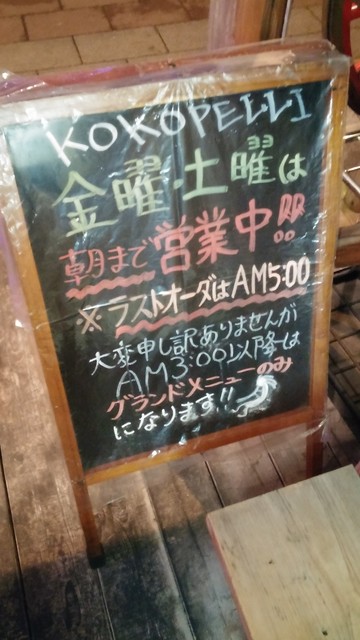 KOKOPELLI
金曜・土曜は
朝まで営業中!!
※ラストオーダはAM5:00
大変申し訳ありませんが
AM3:00以降は
グランドメニューのみ
になります!!